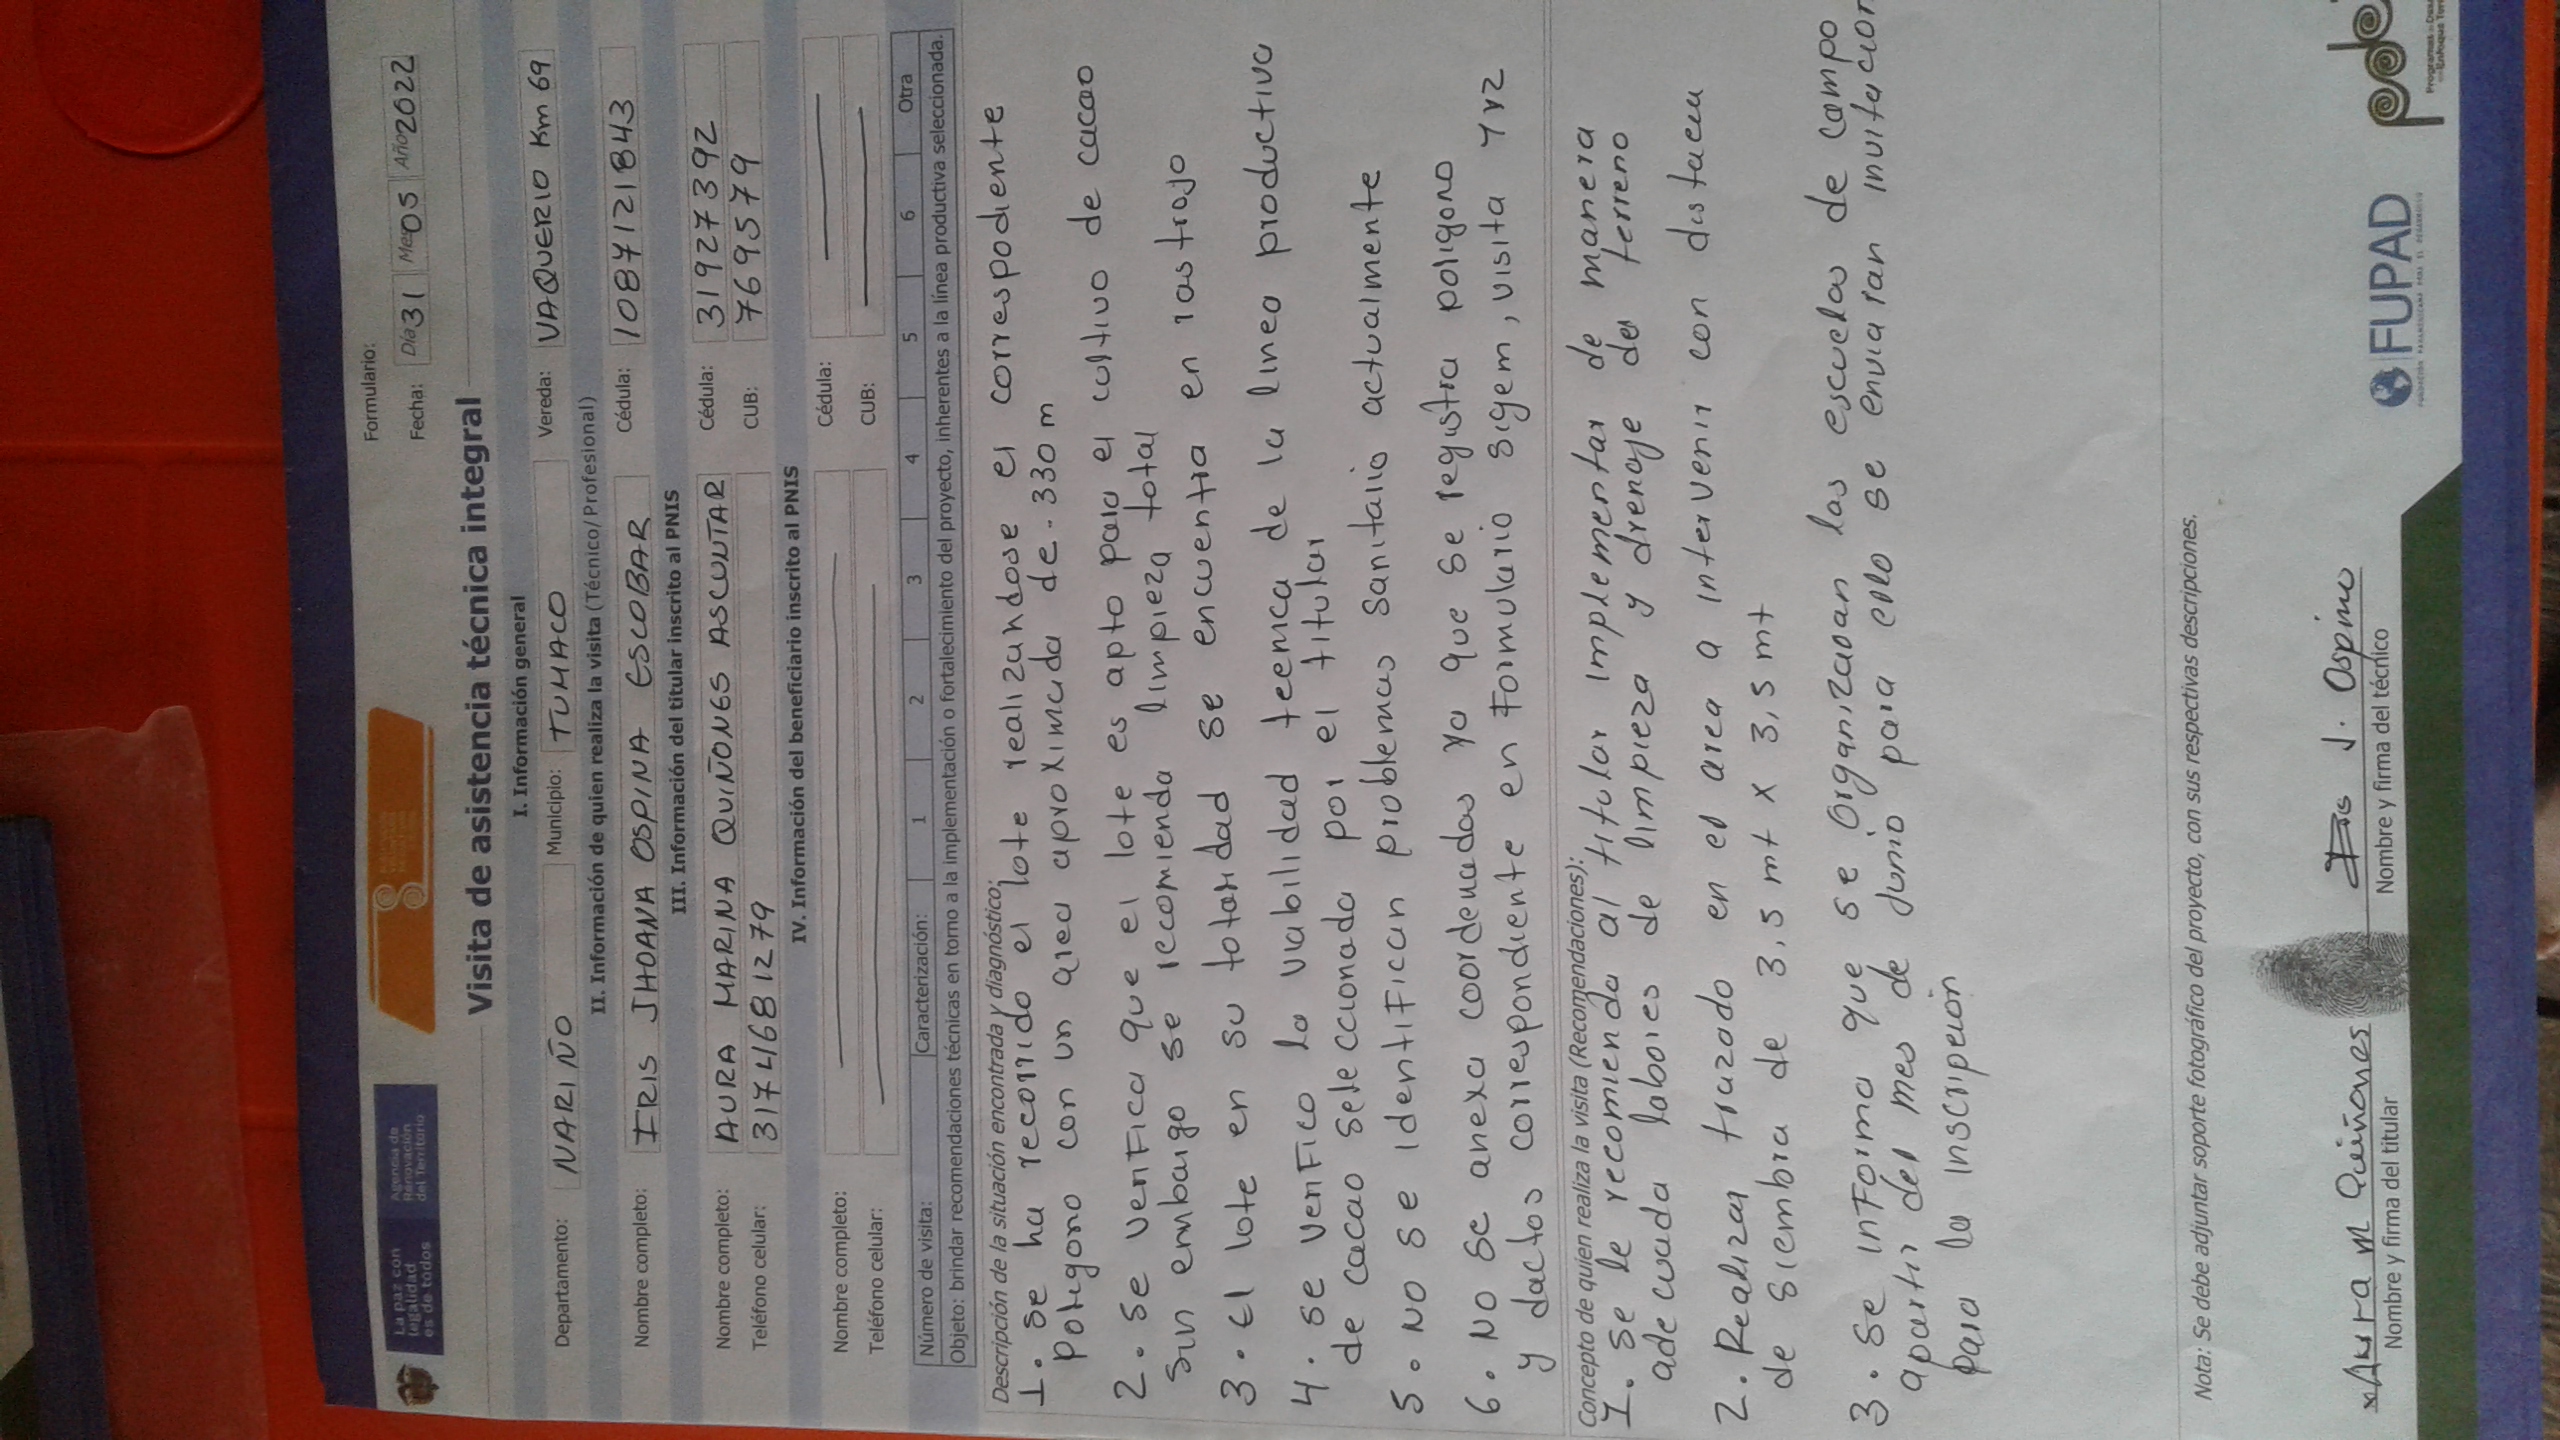 La paz con
legalidad
es de todos
Agencia de
Renovación
del Territorio
Formulario:
Fecha: Día 31 Mes 05 Año 2022
Visita de asistencia técnica integral
I. Información general
Departamento: NARIÑO Municipio: TUMACO Vereda: VAQUERIO Km 69
II. Información de quien realiza la visita (Técnico/Profesional)
Nombre completo: IRIS JHOANA OSPINA ESCOBAR Cédula: 1087121843
III. Información del titular inscrito al PNIS
Nombre completo: AURA MARINA QUIÑONES ASCUNTAR Cédula: 31927392
Teléfono celular: 3174681279 CUB: 7695779
IV. Información del beneficiario inscrito al PNIS
Nombre completo: Cédula:
Teléfono celular: CUB:
Número de visita: Caracterización: 1 2 3 4 5 6 Otra
Objeto: brindar recomendaciones técnicas en torno a la implementación o fortalecimiento del proyecto, inherentes a la línea productiva seleccionada.
Descripción de la situación encontrada y diagnóstico:
1. se ha recorrido el lote realizandose el correspodiente
Poligono con un area aproximada de. 330 m
2. se verifica que el lote es apto para el cultivo de cacao
sin embargo se recomienda limpieza total
3. El lote en su totalidad se encuentra en rastrojo
4. se verifico la viabilidad tecnica de la linea productiva
de cacao seleccionada por el titular
5. No se identifican problemas sanitario actualmente
6. No se anexa coordenadas ya que se registra poligono
y dactos correspondiente en formulario sigem, visita 1x2
Concepto de quien realiza la visita (Recomendaciones):
1. se le recomienda al titular implementar de manera
adecuada labores de limpieza y drenaje del terreno
2. Realizar trazado en el area a intervenir con distacia
de siembra de 3,5 mt x 3,5 mt
3. se informa que se organizaran las escuelas de campo
apartir del mes de Junio para ello se enviaran invitacion
para la inscripcion
Nota: Se debe adjuntar soporte fotográfico del proyecto, con sus respectivas descripciones.
Aura M Quiñones
Nombre y firma del titular
Iris J. Ospina
Nombre y firma del técnico
FUPAD
FUNDACIÓN PANAMERICANA PARA EL DESARROLLO